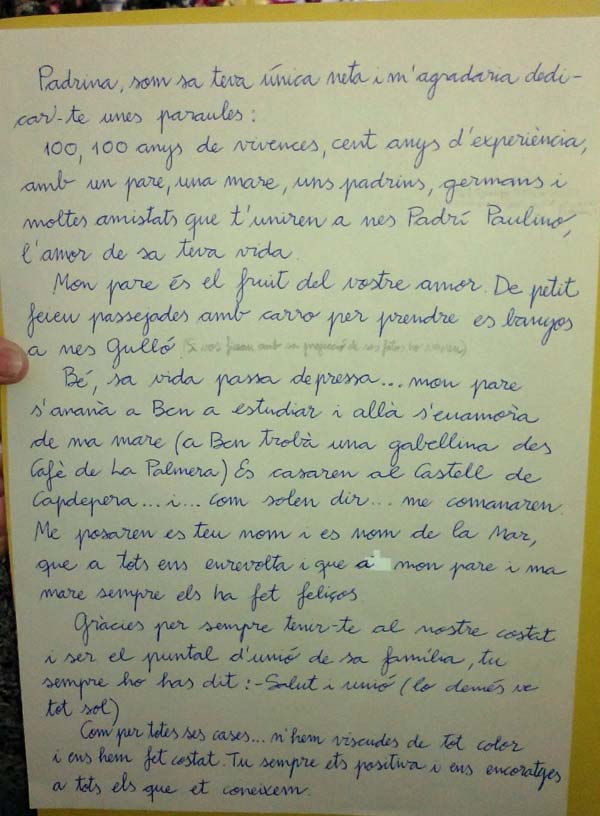 Padrina, som sa teva única neta i m'agradaria dedi-
car-te unes paraules:
100, 100 anys de vivences, cent anys d'experiència,
amb un pare, una mare, uns padrins, germans i
moltes amistats que t'uniren a nes Padrí Paulino,
l'amor de sa teva vida.
Mon pare és el fruit del vostre amor. De petit
feieu passejades amb carro per prendre es banyos
a nes Gulló (Si vos fixau amb sa projecció de ses fotos ho veureu)
Bé, sa vida passa depressa... mon pare
s'ananà a Bcn a estudiar i allà s'enamorà
de ma mare (a Bcn trobà una gabellina des
Cafè de La Palmera) Es casaren al Castell de
Capdepera... i... com solen dir... me comanaren.
Me posaren es teu nom i es nom de la Mar,
que a tots ens enrevolta i que a mon pare i ma
mare sempre els ha fet feliços.
Gràcies per sempre tenir-te al nostre costat
i ser el puntal d'unió de sa família, tu
sempre ho has dit:-Salut i unió (lo demés ve
tot sol)
Com per totes ses cases... n'hem viscudes de tot color
i ens hem fet costat. Tu sempre ets positiva i ens encoratges
a tots els que et coneixem.